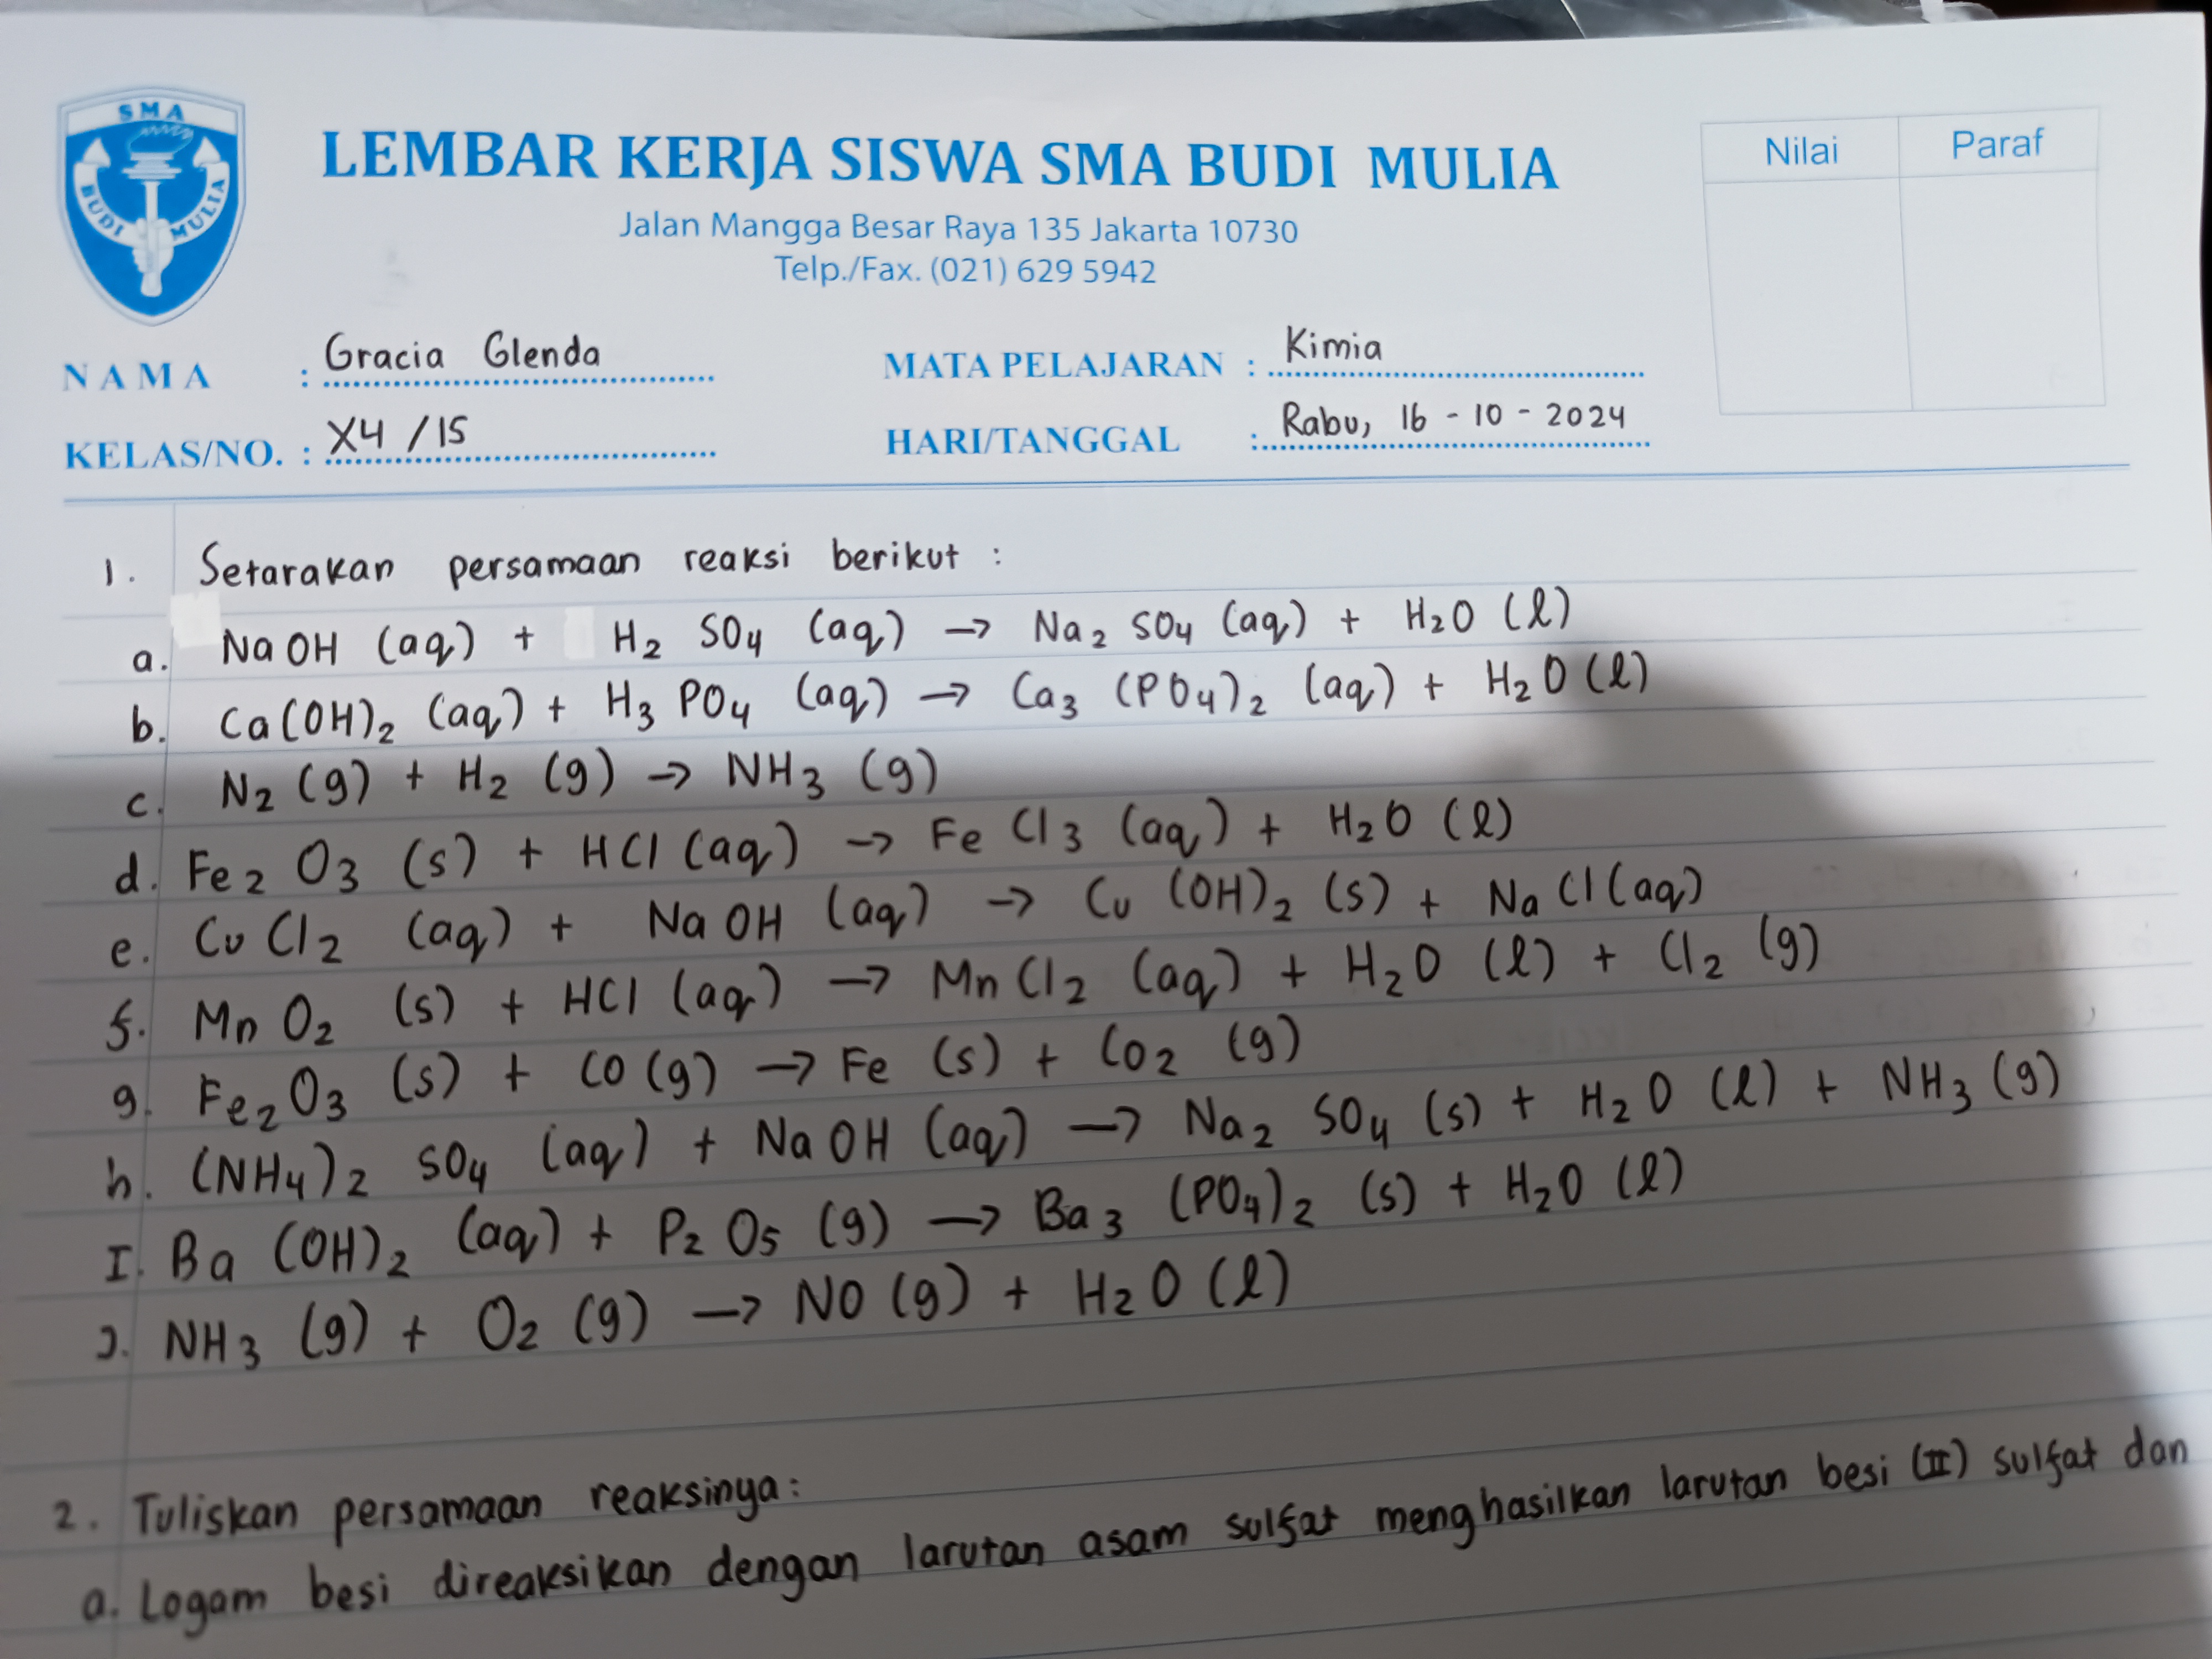 SMA
BUDI MULIA
LEMBAR KERJA SISWA SMA BUDI MULIA
Jalan Mangga Besar Raya 135 Jakarta 10730
Telp./Fax. (021) 629 5942
Nilai Paraf
NAMA : Gracia Glenda MATA PELAJARAN : Kimia
KELAS/NO. : X4 / 15 HARI/TANGGAL : Rabu, 16 - 10 - 2024
1. Setarakan persamaan reaksi berikut :
a. NaOH (aq) + H₂ SO₄ (aq) → Na₂ SO₄ (aq) + H₂O (l)
b. Ca(OH)₂ (aq) + H₃ PO₄ (aq) → Ca₃ (PO₄)₂ (aq) + H₂O (l)
c. N₂ (g) + H₂ (g) → NH₃ (g)
d. Fe₂ O₃ (s) + HCl (aq) → Fe Cl₃ (aq) + H₂O (l)
e. Cu Cl₂ (aq) + Na OH (aq) → Cu (OH)₂ (s) + Na Cl (aq)
f. Mn O₂ (s) + HCl (aq) → Mn Cl₂ (aq) + H₂O (l) + Cl₂ (g)
g. Fe₂O₃ (s) + CO (g) → Fe (s) + CO₂ (g)
h. (NH₄)₂ SO₄ (aq) + Na OH (aq) → Na₂ SO₄ (s) + H₂O (l) + NH₃ (g)
I. Ba (OH)₂ (aq) + P₂ O₅ (g) → Ba₃ (PO₄)₂ (s) + H₂O (l)
J. NH₃ (g) + O₂ (g) → NO (g) + H₂O (l)
2. Tuliskan persamaan reaksinya :
a. Logam besi direaksikan dengan larutan asam sulfat menghasilkan larutan besi (II) sulfat dan